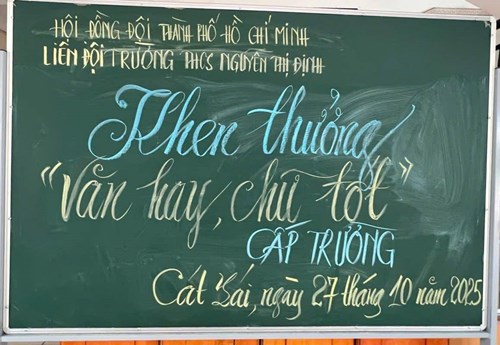 HỘI ĐỒNG ĐỘI THÀNH PHỐ HỒ CHÍ MINH
LIÊN ĐỘI TRƯỜNG THCS NGUYỄN THỊ ĐỊNH
Khen thưởng
"văn hay, chữ tốt"
CẤP TRƯỜNG
Cát Lái, ngày 27 tháng 10 năm 2025